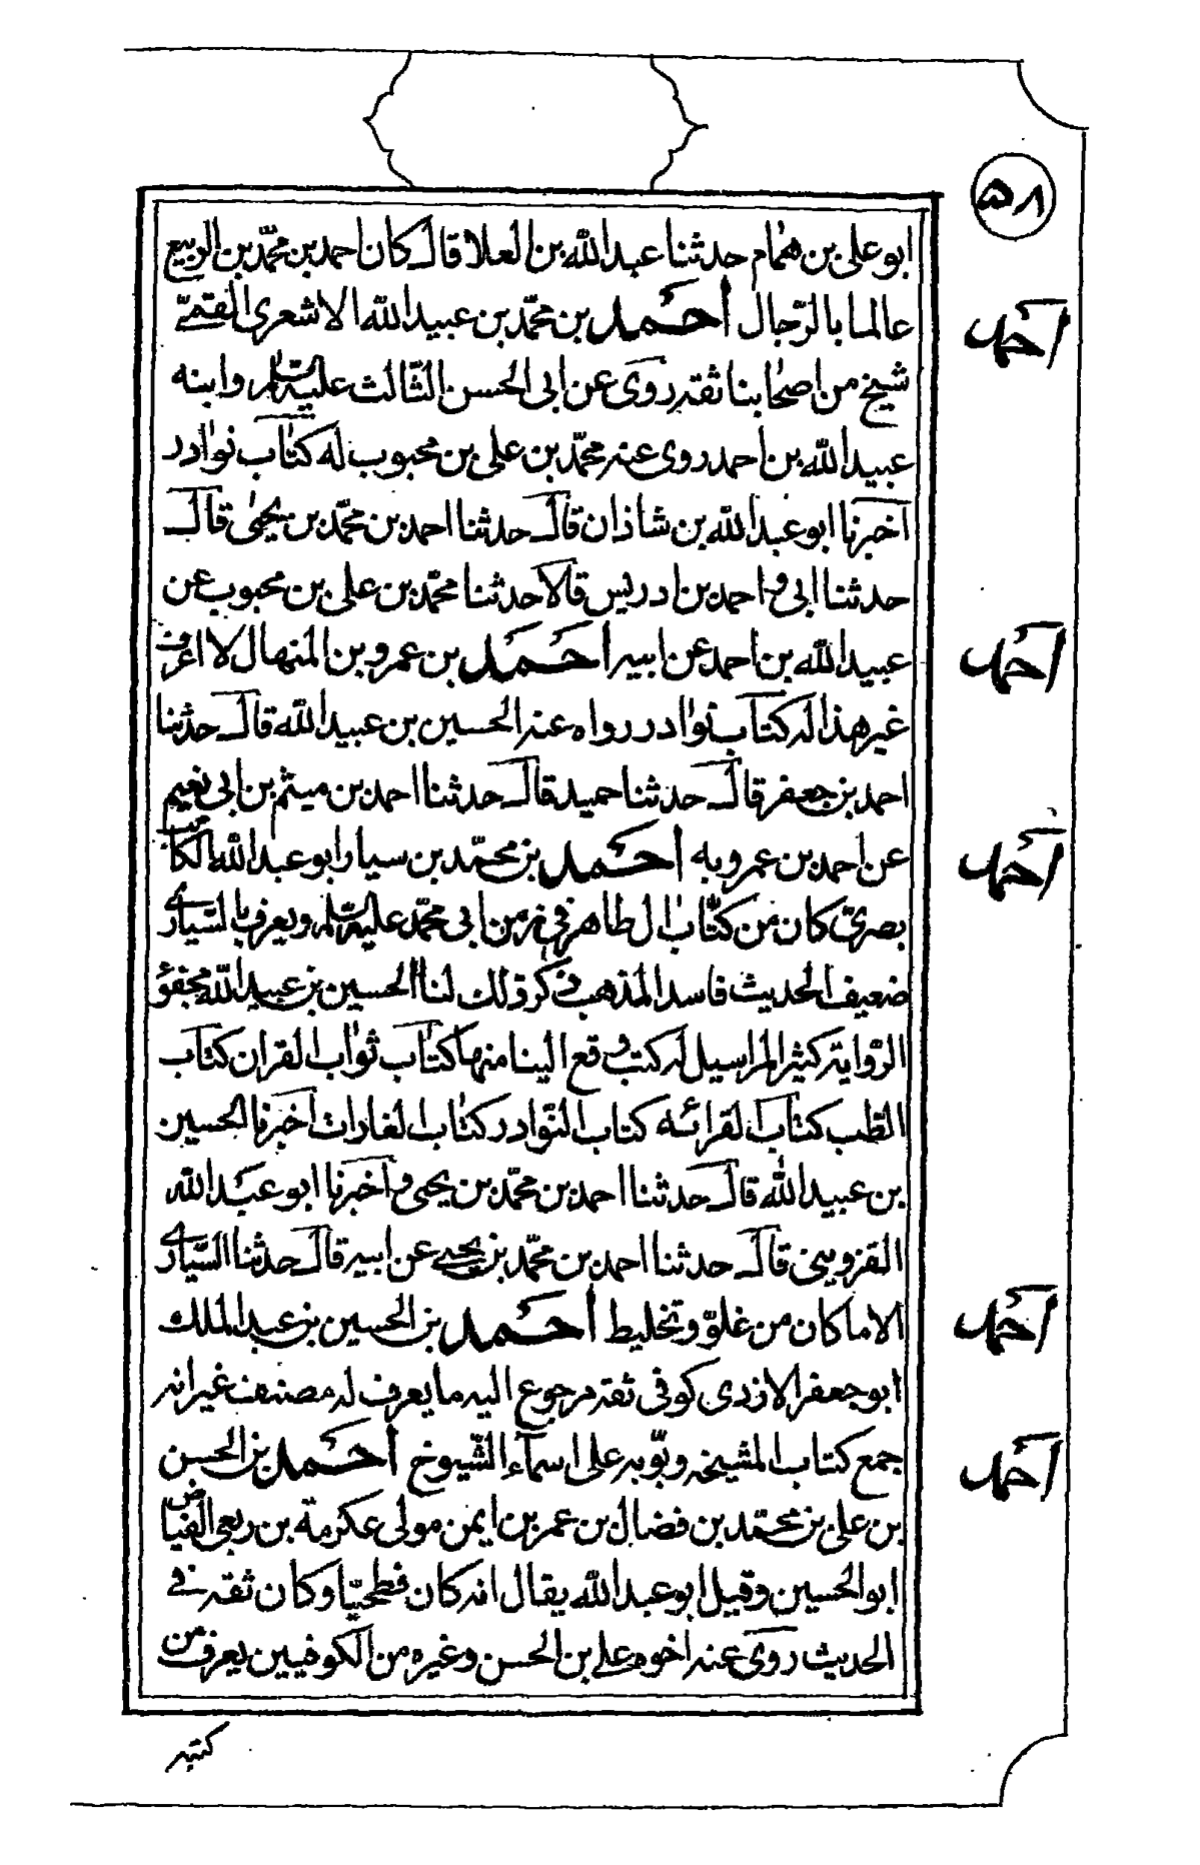 ٥٨
ابو على بن همام حدثنا عبد الله بن العلا قال كان احمد بن محمّد بن الربيع
عالما بالرّجال أحمد بن محمّد بن عبيد الله الاشعرى القمىّ
احمد
شيخ من اصحابنا ثقه روى عن ابى الحسن الثّالث عليه السلم وابنه
عبيد الله بن احمد روى عنه محمّد بن على بن محبوب له كتاب نوادر
اخبرنا ابو عبد الله بن شاذان قال حدثنا احمد بن محمّد بن يحيى قال
حدثنا ابى و احمد بن ادريس قالا حدثنا محمّد بن على بن محبوب عن
عبيد الله بن احمد عن ابيه أحمد بن عمرو بن المنهال لا اعرف
احمد
غير هذا له كتاب نوادر رواه عنه الحسين بن عبيد الله قال حدثنا
احمد بن جعفر قال حدثنا حميد قال حدثنا احمد بن ميثم بن ابى نعيم
عن احمد بن عمرو به أحمد بن محمّد بن سيار ابو عبد الله الكاتب
احمد
بصرىّ كان من كتّاب ال طاهر فى زمن ابى محمّد عليه السلم ويعرف بالسّيارى
ضعيف الحديث فاسد المذهب ذكر ذلك لنا الحسين بن عبيد الله مجفوّ
الرّواية كثير المراسيل له كتب وقع الينا منها كتاب ثواب القران كتاب
الطّب كتاب القرائه كتاب النّوادر كتاب الغارات اخبرنا الحسين
بن عبيد الله قال حدثنا احمد بن محمّد بن يحيى و اخبرنا ابو عبد الله
القزوينى قال حدثنا احمد بن محمّد بن يحيى عن ابيه قال حدثنا السّيارى
الا ما كان من غلوّ وتخليط أحمد بن الحسين بن عبد الملك
احمد
ابو جعفر الازدى كوفى ثقه مرجوع اليه ما يعرف له مصنف غير انه
جمع كتاب المشيخه وبوّبه على اسمآء الشّيوخ أحمد بن الحسن
احمد
بن على بن محمّد بن فضال بن عمر بن ايمن مولى عكرمة بن ربعى الفياض
ابو الحسين وقيل ابو عبد الله يقال انه كان فطحيّا وكان ثقه فى
الحديث روى عنه اخوه على بن الحسن وغيره من الكوفيين يعرف من
كتبه